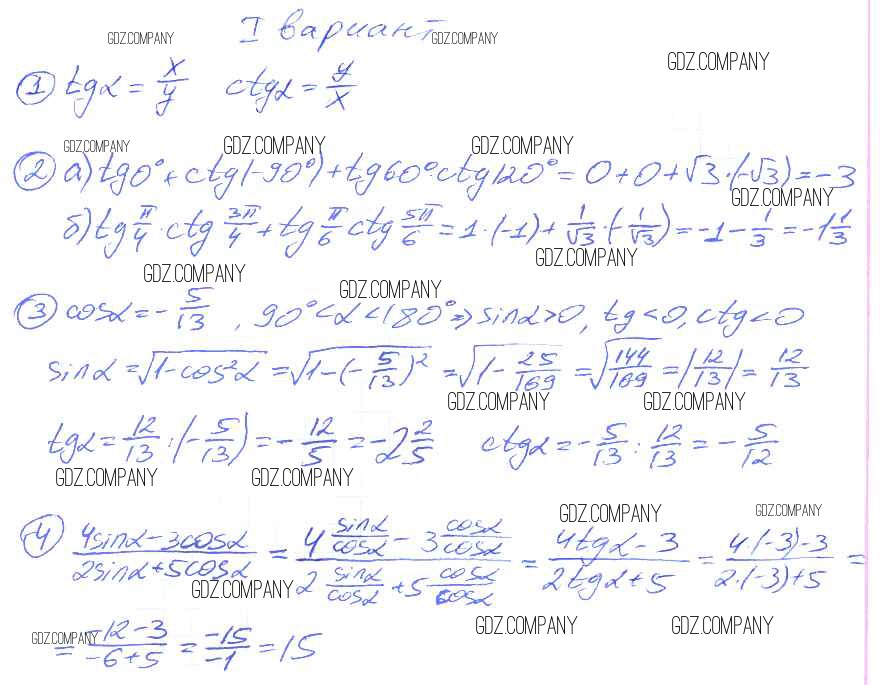 I вариант
GDZ.COMPANY GDZ.COMPANY GDZ.COMPANY
① tgα = x/y ctgα = y/x
GDZ.COMPANY GDZ.COMPANY GDZ.COMPANY
② а) tg0° + ctg(-90°) + tg60°ctg120° = 0 + 0 + √3 · (-√3) = -3
GDZ.COMPANY
б) tg π/4 · ctg 3π/4 + tg π/6 ctg 5π/6 = 1 · (-1) + 1/√3 · (-1/√3) = -1 - 1/3 = -1 1/3
GDZ.COMPANY
GDZ.COMPANY GDZ.COMPANY
③ cosα = - 5/13, 90° < α < 180° ⇒ sinα > 0, tg < 0, ctg < 0
sinα = √(1 - cos²α) = √(1 - (- 5/13)²) = √(1 - 25/169) = √(144/169) = |12/13| = 12/13
GDZ.COMPANY GDZ.COMPANY
tgα = 12/13 : (- 5/13) = - 12/5 = -2 2/5 ctgα = - 5/13 : 12/13 = - 5/12
GDZ.COMPANY GDZ.COMPANY
GDZ.COMPANY GDZ.COMPANY
④ (4sinα - 3cosα)/(2sinα + 5cosα) = (4 sinα/cosα - 3 cosα/cosα)/(2 sinα/cosα + 5 cosα/cosα) = (4tgα - 3)/(2tgα + 5) = (4·(-3) - 3)/(2·(-3) + 5) =
GDZ.COMPANY
GDZ.COMPANY GDZ.COMPANY GDZ.COMPANY
= (-12 - 3)/(-6 + 5) = -15/-1 = 15